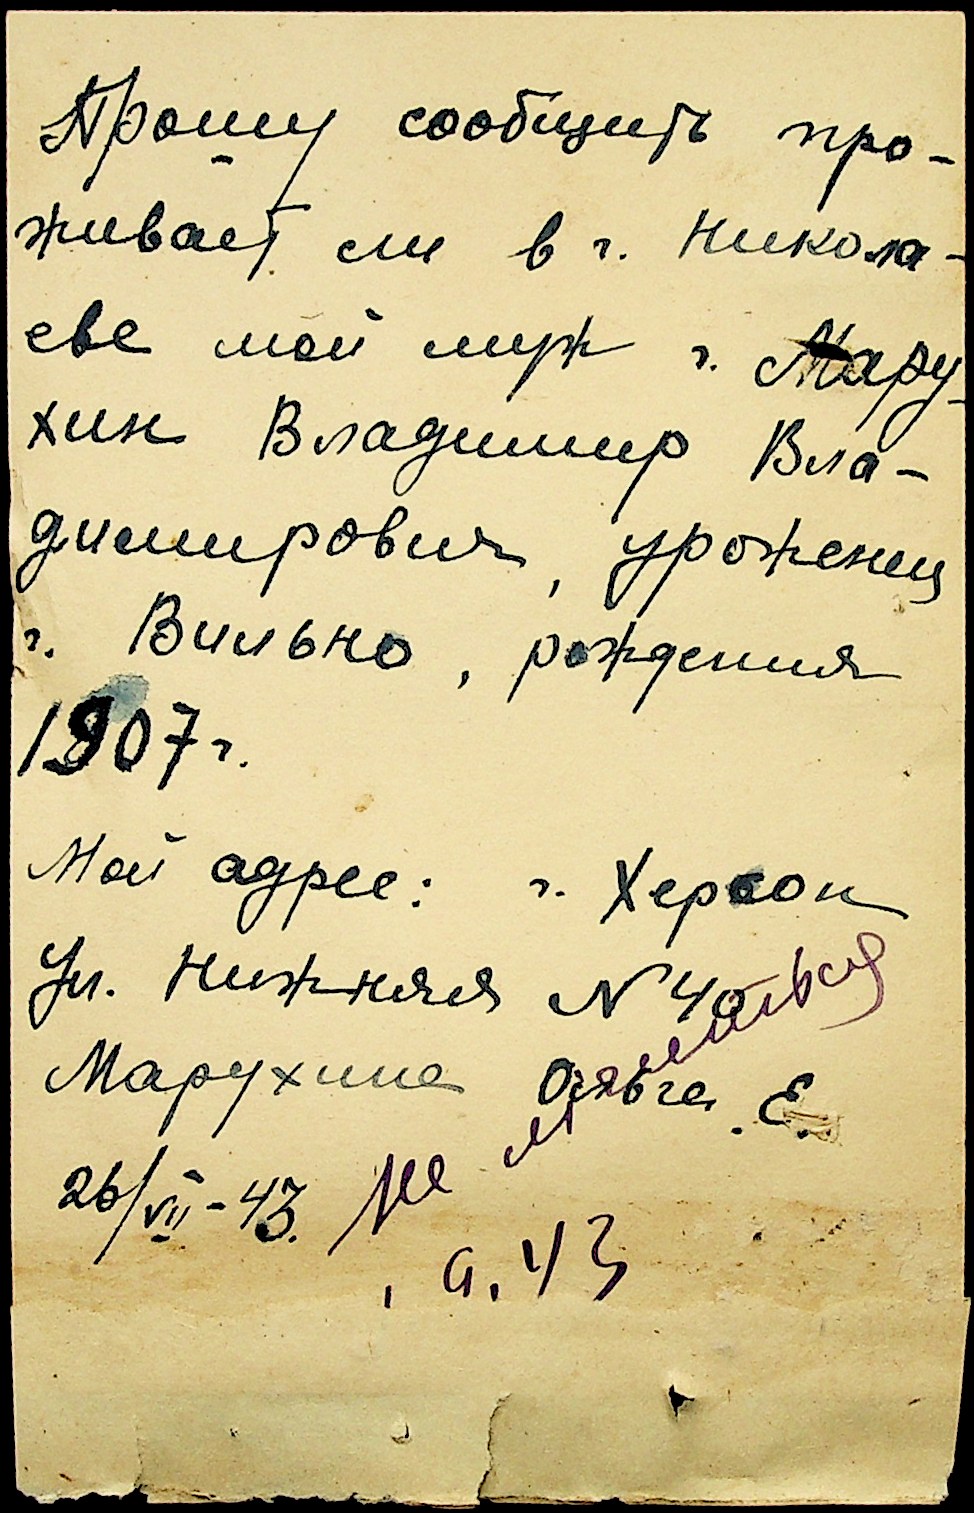 Прошу сообщить про-
живает ли в г. Никола-
еве мой муж г. Мару-
хин Владимир Вла-
димирович, уроженец
г. Вильно, рождения
1907 г.
Мой адрес: г. Херсон
Ул. Нижняя N 40
Марухина Ольга. Е.
26/VII-43.
Не
43